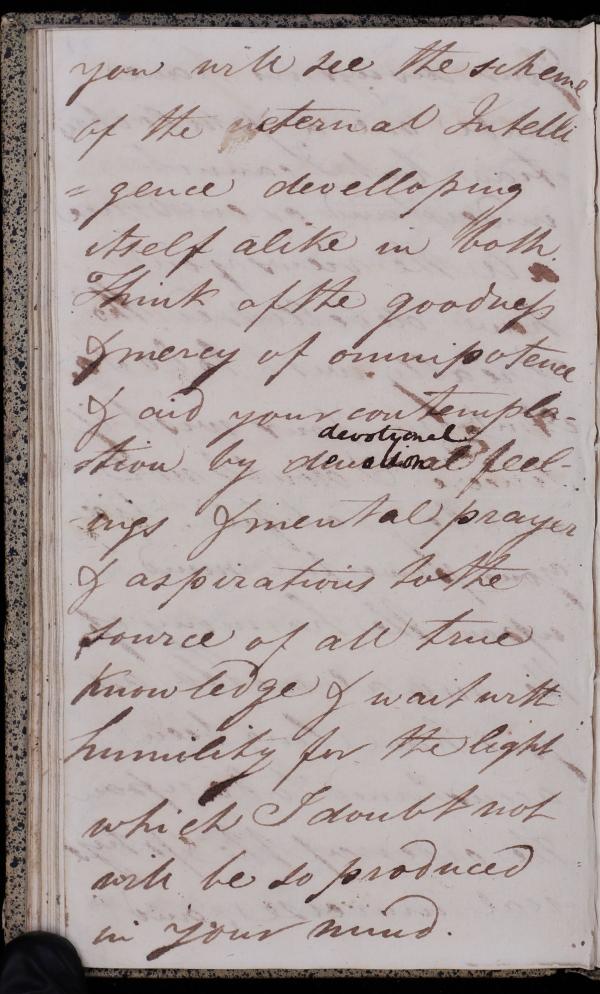 you will see the scheme
of the eternal Intelli
= gence devellopping
itself alike in both.
Think of the goodness
& mercy of omnipotence
& aid your contempla-
devotional
-tion by devotional feel-
-ings & mental prayer
& aspirations to the
source of all true
knowledge & wait with
humility for the light
which I doubt not
will be so produced
in your mind.